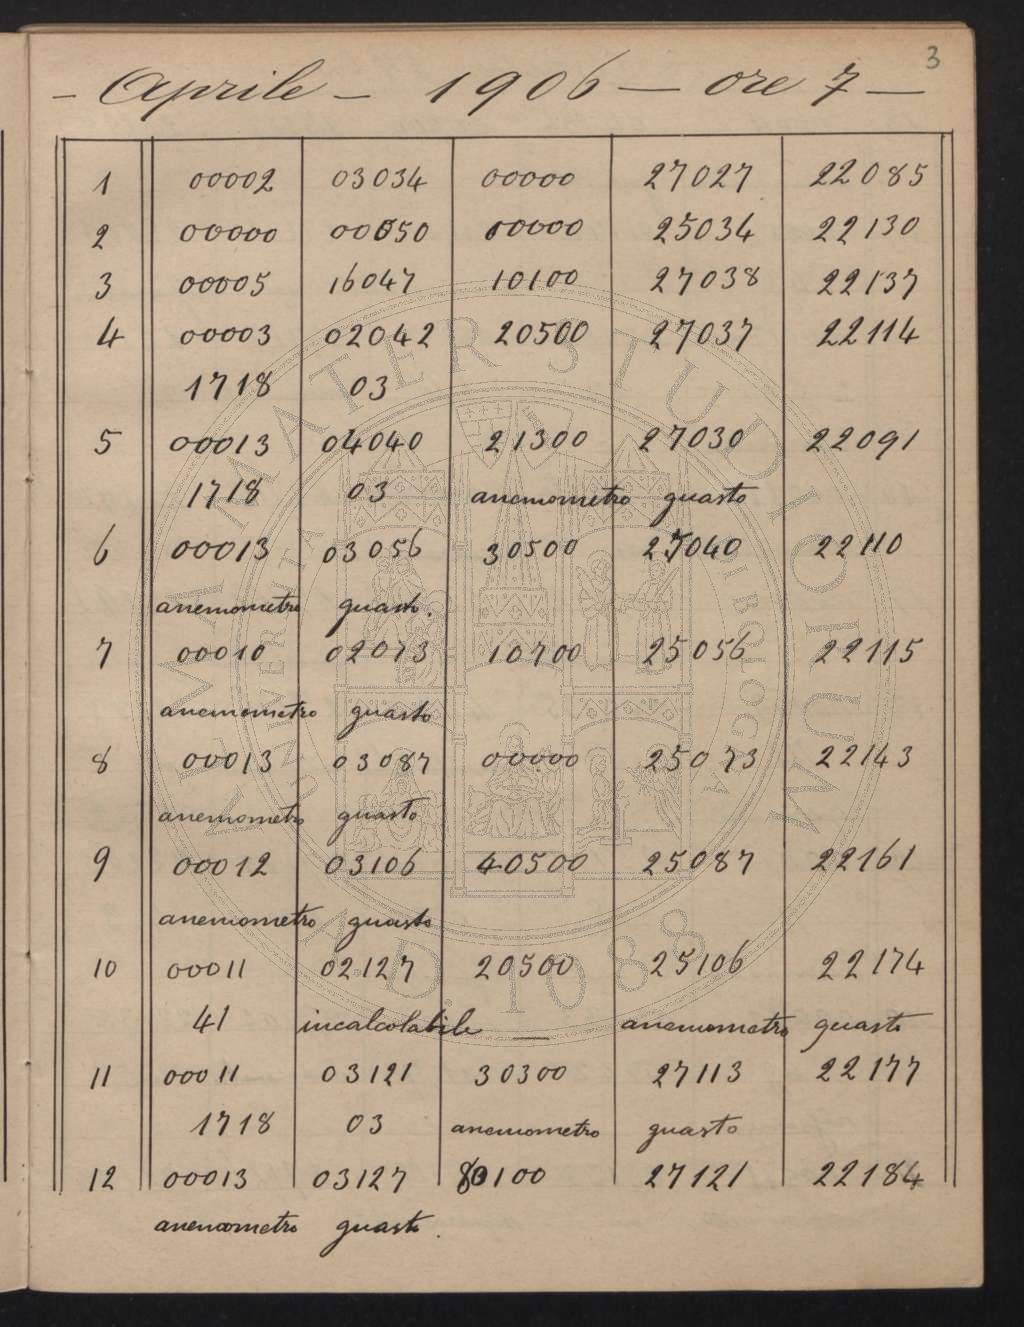 3
- Aprile - 1906 - ore 7 -
1 00002 03034 00000 27027 22085
2 00000 00050 00000 25034 22130
3 00005 16047 10100 27038 22137
4 00003 02042 20500 27037 22114
1718 03
5 00013 04040 21300 27030 22091
1718 03 anemometro guasto
6 00013 03056 30500 27040 22110
anemometro guasto.
7 00010 02073 10700 25056 22115
anemometro guasto
8 00013 03087 00000 25073 22143
anemometro guasto
9 00012 03106 40500 25087 22161
anemometro guasto
10 00011 02127 20500 25106 22174
41 incalcolabile — anemometro guasto
11 00011 03121 30300 27113 22177
1718 03 anemometro guasto
12 00013 03127 80100 27121 22184
anemometro guasto.
ALMA MATER STUDIORUM
UNIVERSITÀ DI BOLOGNA
A.D. 1088